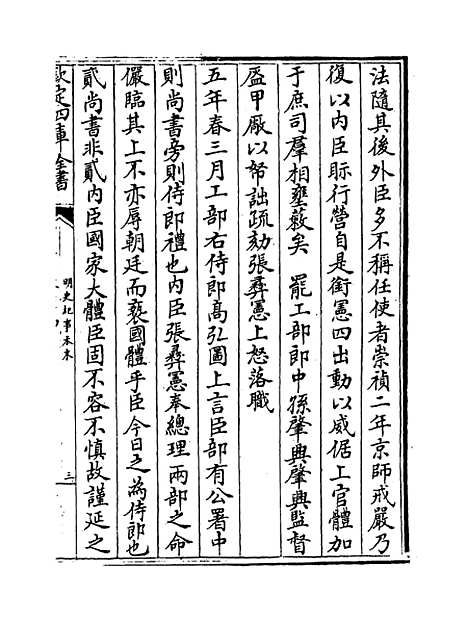 法隨其後外臣多不稱任使者崇禎二年京師戒嚴乃
復以内臣眎行營自是銜憲四出動以威倨上官體加
于庶司羣相壅蔽矣　罷工部郎中孫肇興肇興監督
盔甲厰以帑詘疏劾張彞憲上怒落職
五年春三月工部右侍郎髙弘圖上言臣部有公署中
則尚書旁則侍郎禮也内臣張彞憲奉總理兩部之命
儼臨其上不亦辱朝廷而褻國體乎臣今日之為侍郎也
貳尚書非貳内臣國家大體臣固不容不慎故謹延之
欽定四庫全書
明史紀事本末
三